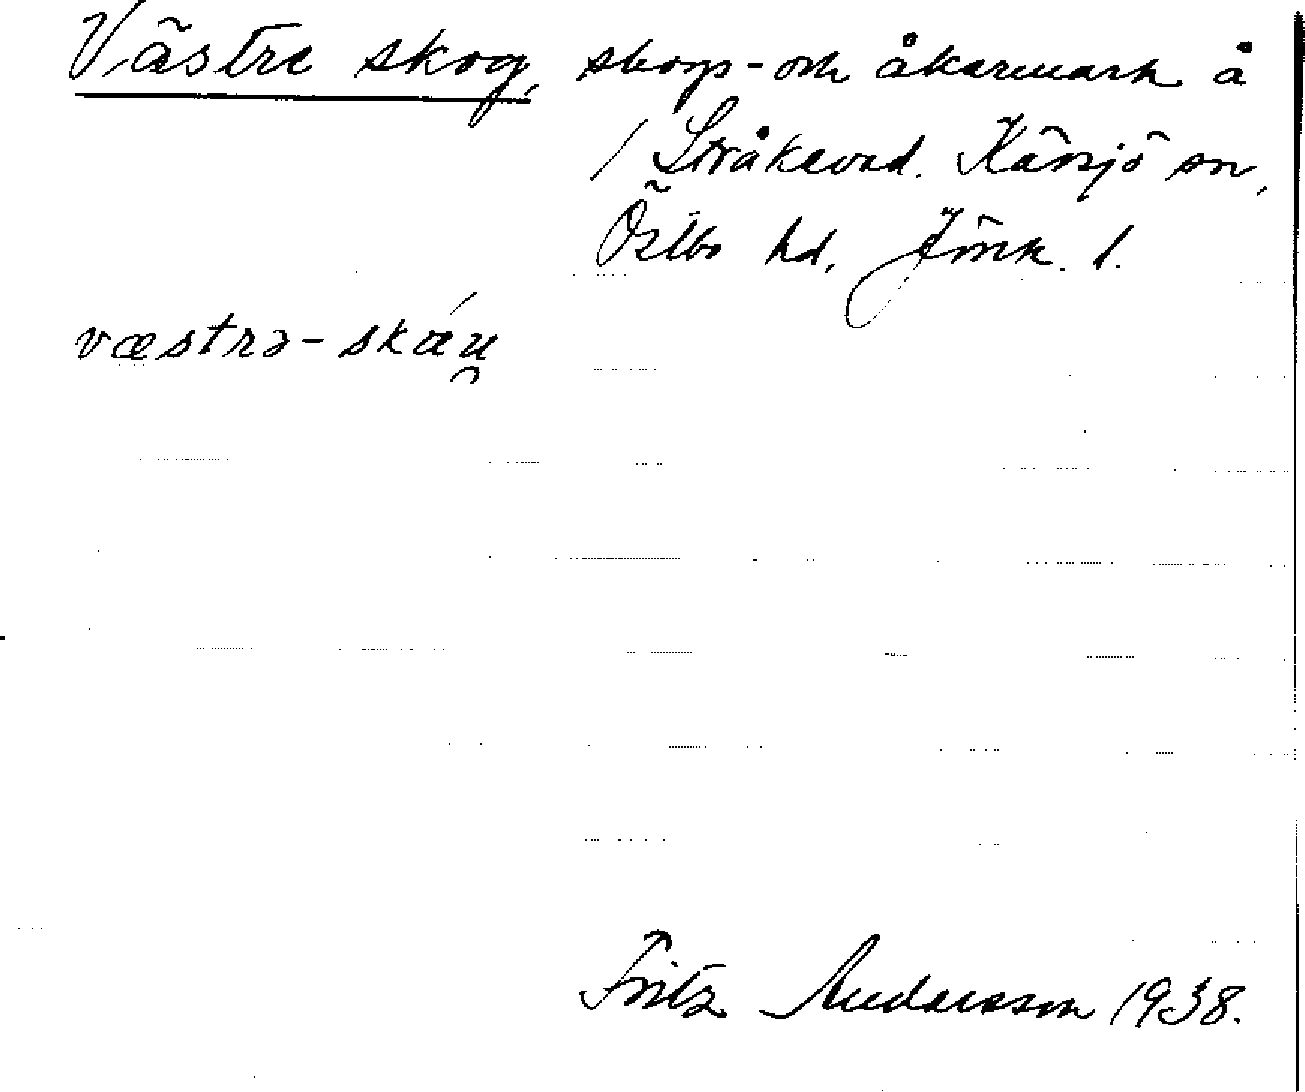 Västra skog, skogs- och åkermark å
/ Stråkeved. Kånsjö sn,
Östbo hd, Jönk. l.
væstra-skáu̯
Fritz Andersson 1938.